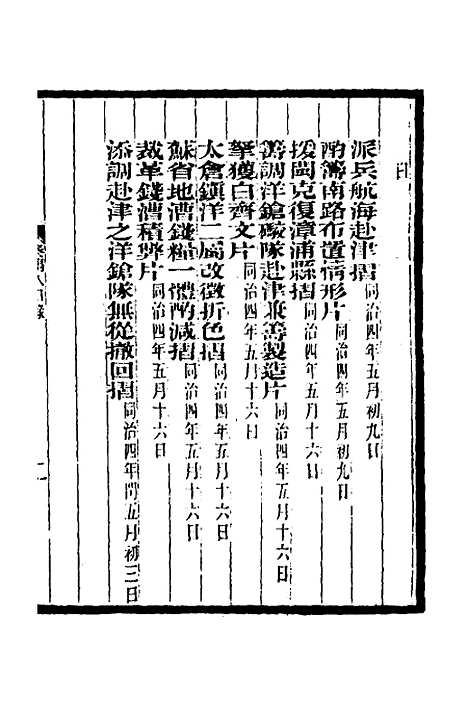 派兵航海赴津摺同治四年五月初九日
酌籌南路布置情形片同治四年五月初九日
援閩克復漳浦縣摺同治四年五月十六日
籌調洋鎗礮隊赴津兼籌製造片同治四年五月十六日
拏獲白齊文片同治四年五月十六日
太倉鎭洋二屬改徵折色摺同治四年五月十六日
蘇省地漕錢糧一體酌減摺同治四年五月十六日
裁革錢漕積弊片同治四年五月十六日
添調赴津之洋鎗隊無從撤回摺同治四年閏五月初三日